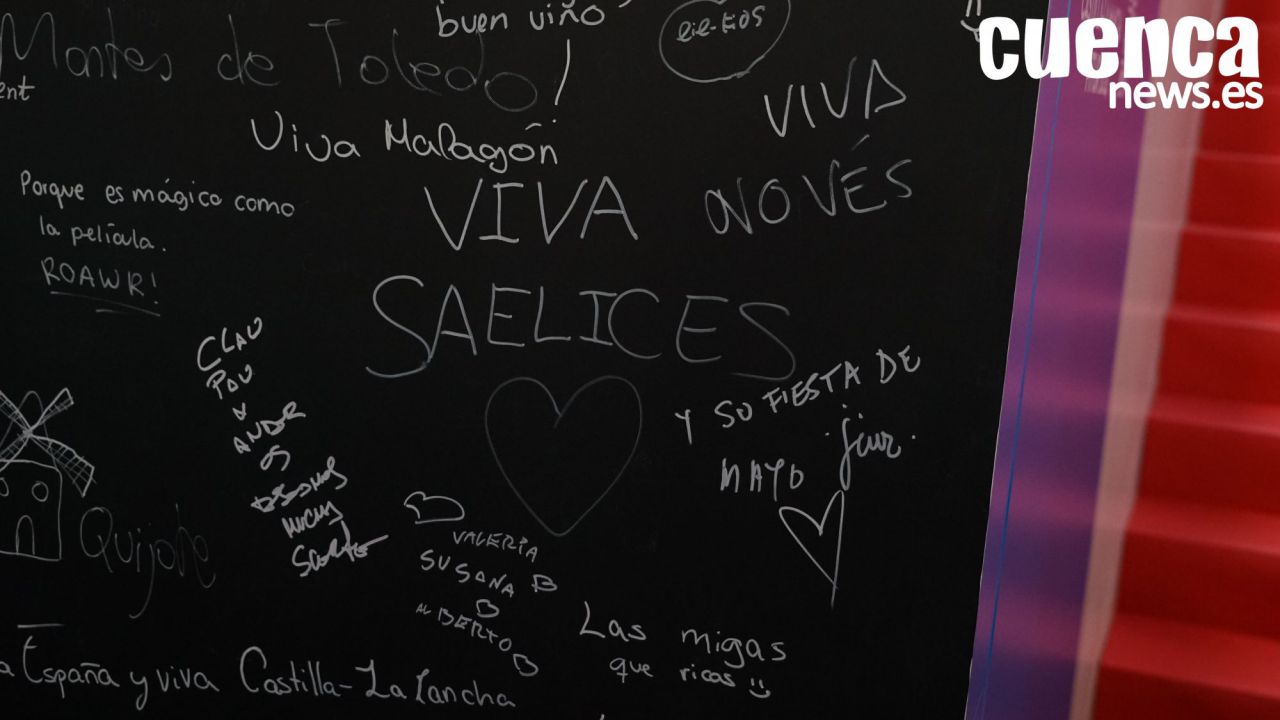 buen viño
Montes de Toledo!
ent
Viva Malagón
VIVA
NOVÉS
Porque es mágico como
la película.
ROAWR!
VIVA
SAELICES
Y SU FIESTA DE
MAYO
CLAU
PAU
Y
ANDR
OS
Quijote
VALERIA
SUSANA
ALBERTO
Las migas
que ricas
a España y viva Castilla-La Lancha
cuenca
news.es